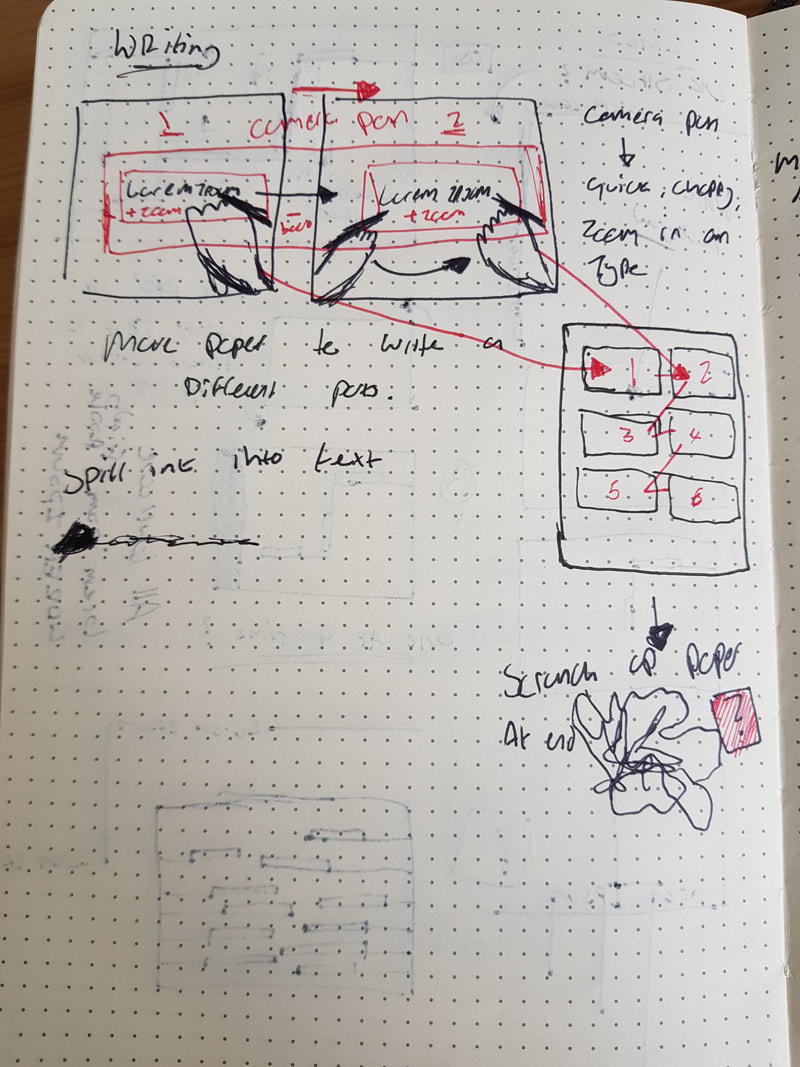 Writing
1 camera pan 2
Lorem Ipsum
+ zoom
Lorem Ipsum
+ zoom
Camera pan
Quick, choppy,
Zoom in on
Type
Move paper to write on
Different parts.
Spill ink into text
1 2
3 4
5 6
Scrunch up paper
At end
?